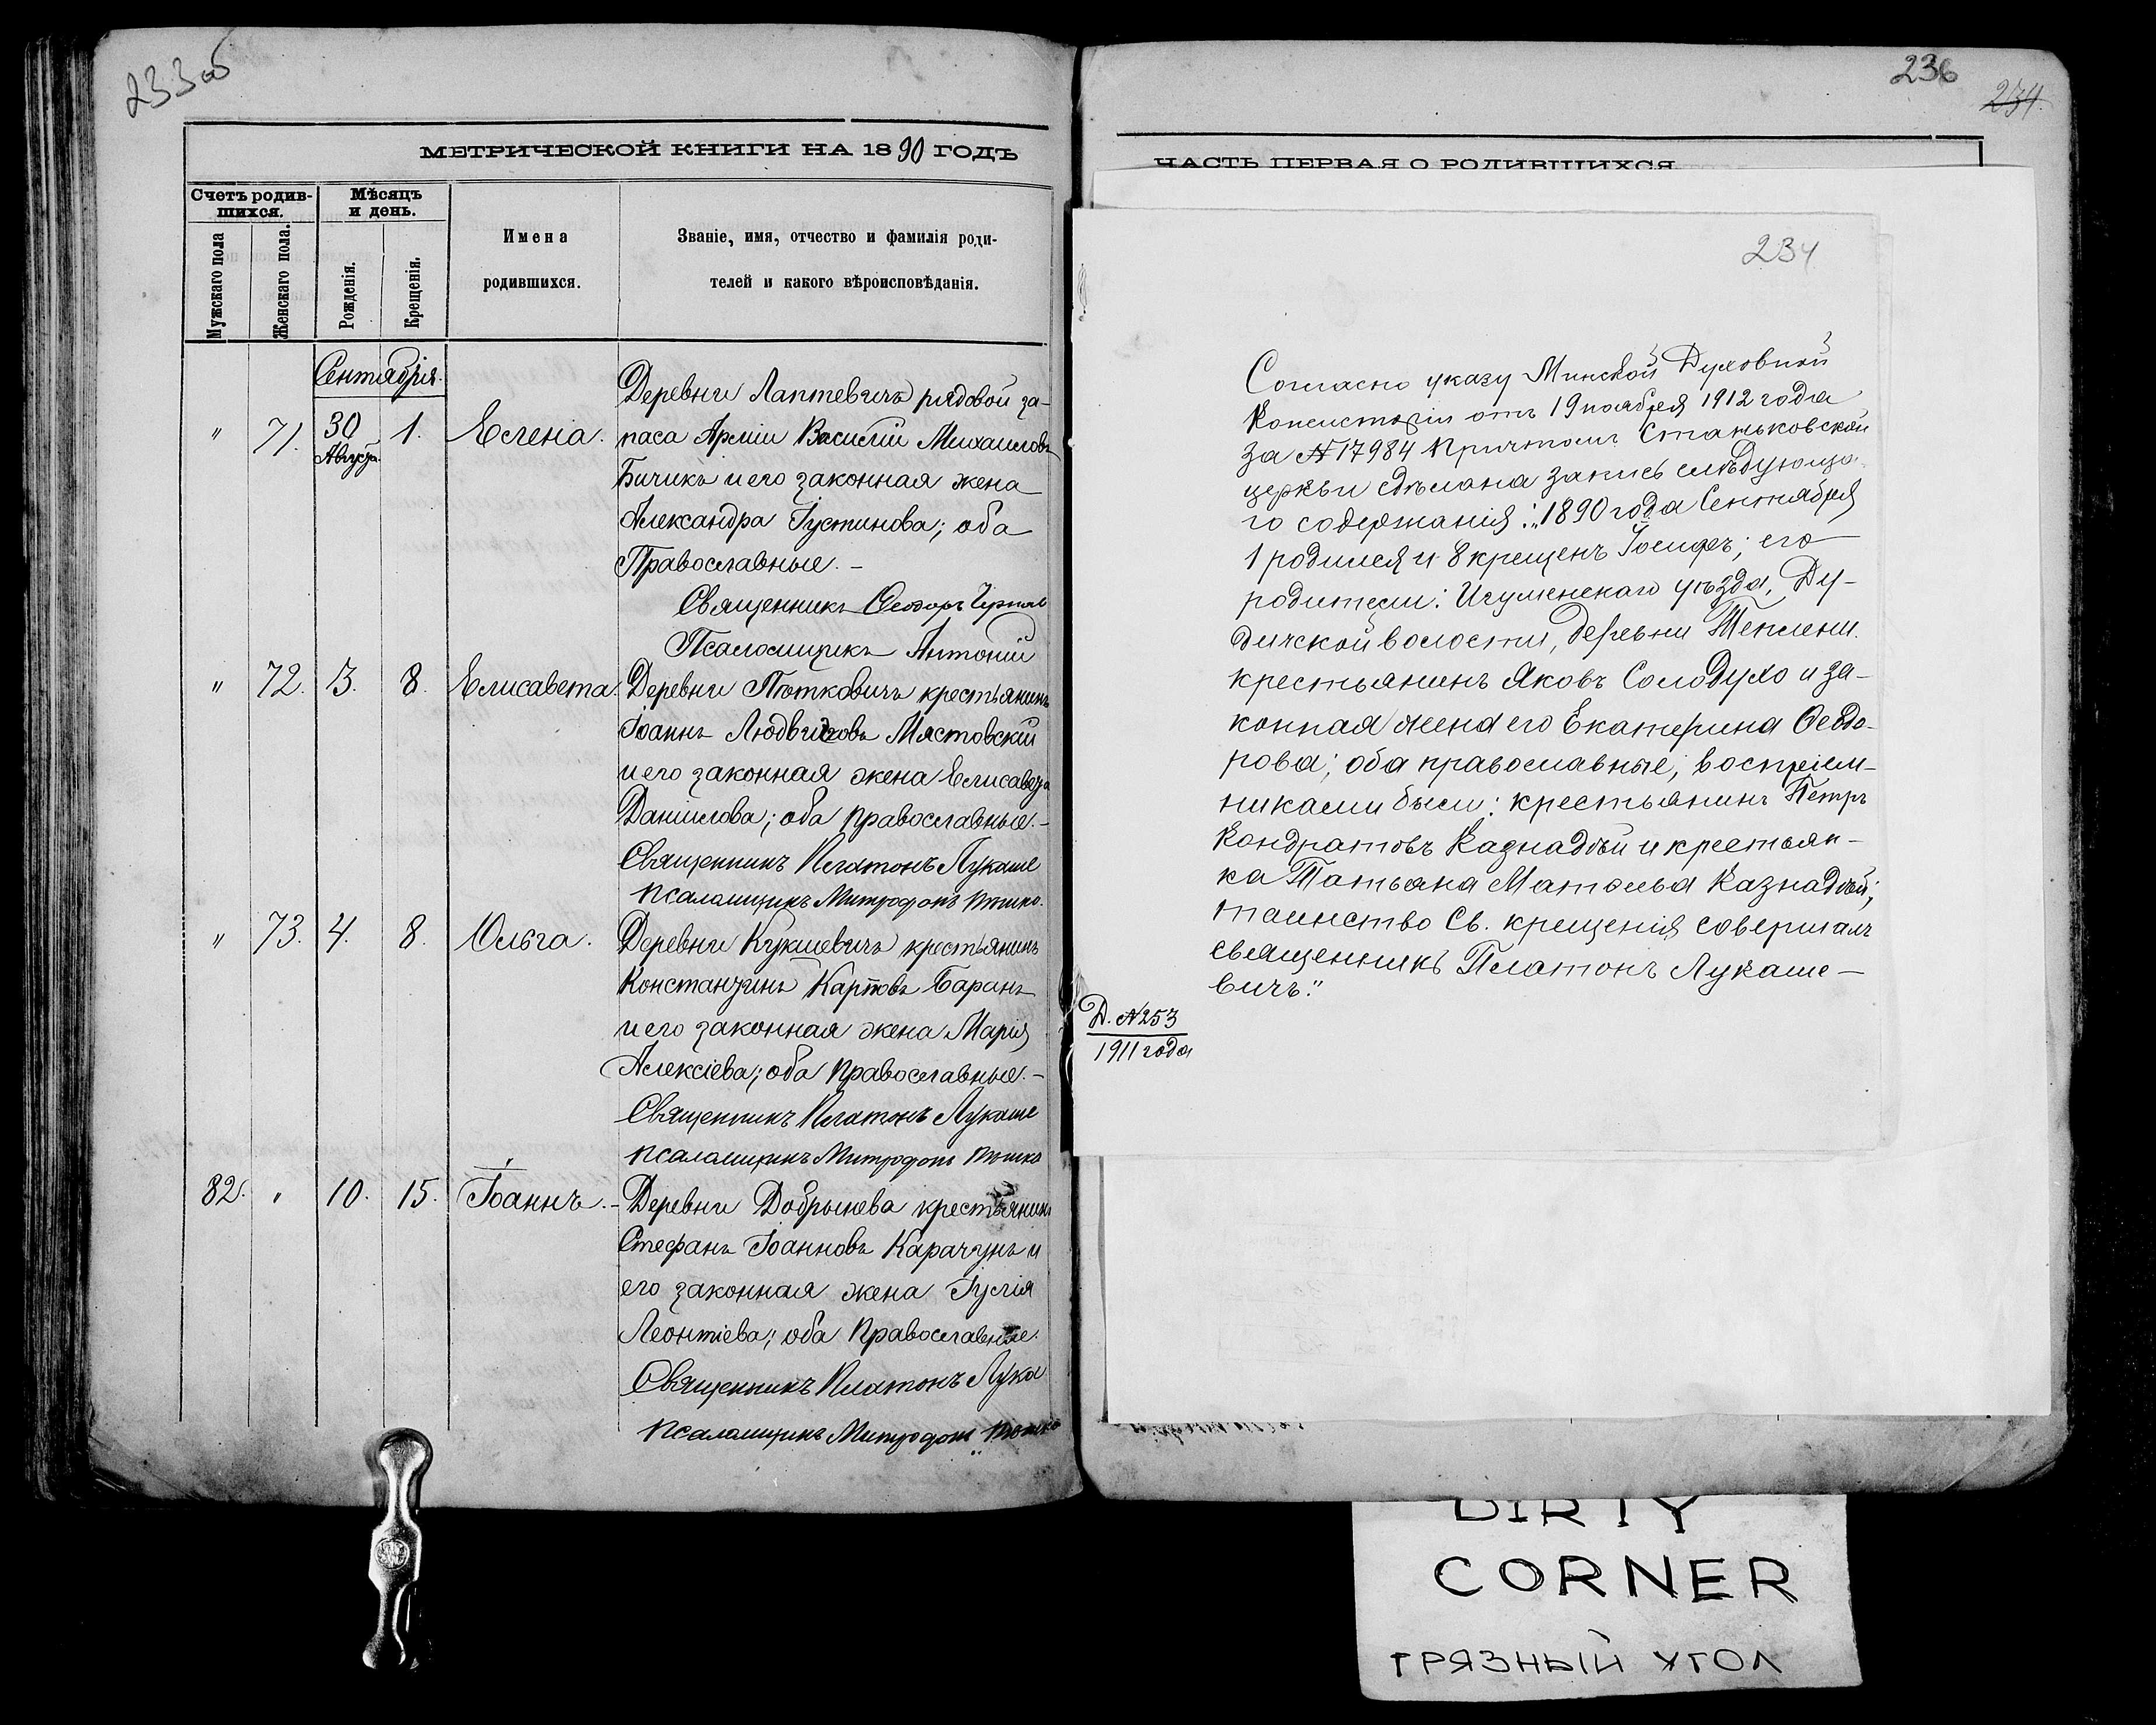 233об
МЕТРИЧЕСКОЙ КНИГИ НА 1890 ГОДЪ
Счетъ родив-
шихся.
Мѣсяцъ
и день.
Мужскаго пола
Женскаго пола.
Рожденія.
Крещенія.
Имена
родившихся.
Званіе, имя, отчество и фамилія роди-
телей и какого вѣроисповѣданія.
Сентября.
" 71. 30 Августа 1. Елена. Деревни Лаптевичъ рядовой за-
паса Арміи Василій Михаиловъ
Бичикъ и его законная жена
Александра Іустинова; оба
Православные. -
Священникъ Ѳеодоръ
Псаломщикъ Антоній
" 72. 3. 8. Елисавета. Деревни Плюшковичъ крестьянинъ
Іоаннъ Людвиковъ Мястовскій
и его законная жена Елисавета
Даніилова; оба православные. -
Священникъ Платонъ Лукаше
Псаломщикъ Митрофанъ
" 73. 4. 8. Ольга. Деревни Кукшевичъ крестьянинъ
Константинъ Карповъ Баранъ
и его законная жена Марія
Алексіева; оба православные. -
Священникъ Платонъ Лукаше
Псаломщикъ Митрофанъ
82. " 10. 15. Іоаннъ. - Деревни Добринева крестьянинъ
Стефанъ Іоанновъ Карачунъ и
его законная жена Іулія
Леонтіева; оба православные.
Священникъ Платонъ Лука
Псаломщикъ Митрофанъ
236
234.
ЧАСТЬ ПЕРВАЯ О РОДИВШИХСЯ
234
Согласно указу Минской Духовной
Консисторіи отъ 19 ноября 1912 года
за №17984 причтомъ Станьковской
церкви сдѣлана запись слѣдующа-
го содержанія: "1890 года Сентября
1 родился и 8 крещенъ Іосифъ; его
родители: Игуменскаго уѣзда, Ду-
дичской волости, деревни Теплени.
крестьянинъ Яковъ Солодухо и за-
конная жена его Екатерина Ѳеодо-
рова; оба православные; воспріем-
никами были: крестьянинъ Петръ
Кондратовъ Казнадѣй и крестьян-
ка Татьяна Матѳьева Казнадѣй;
таинство Св. крещенія совершалъ
священникъ Платонъ Лукаше-
вичъ."
Д. №253
1911 года
DIRTY
CORNER
ГРЯЗНЫЙ УГОЛ